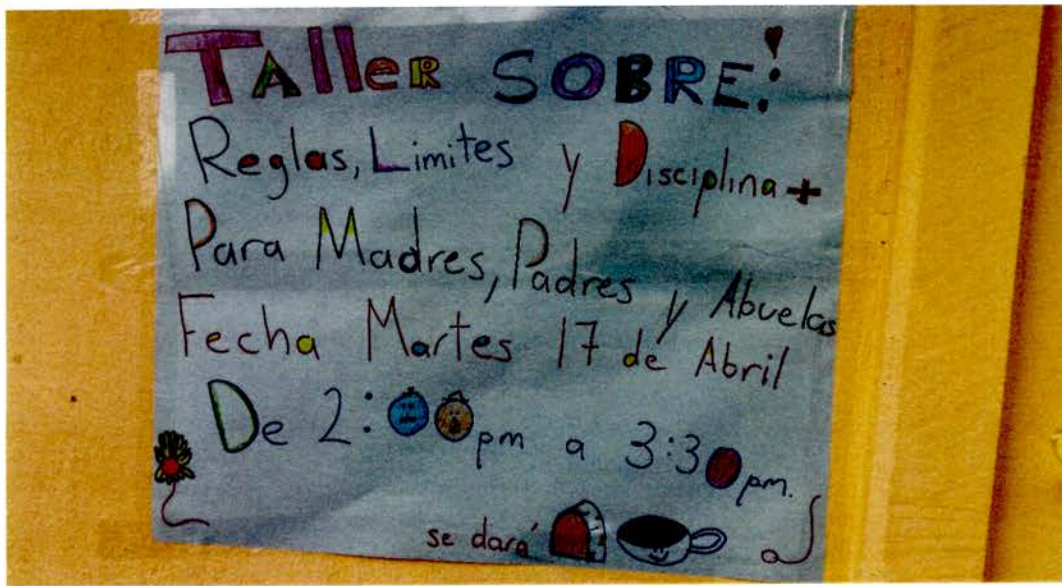 TAlleR SOBRE!
Reglas, Limites y Disciplina +
Para Madres, Padres y Abuelas
Fecha Martes 17 de Abril
De 2:00 pm a 3:30 pm.
se dará